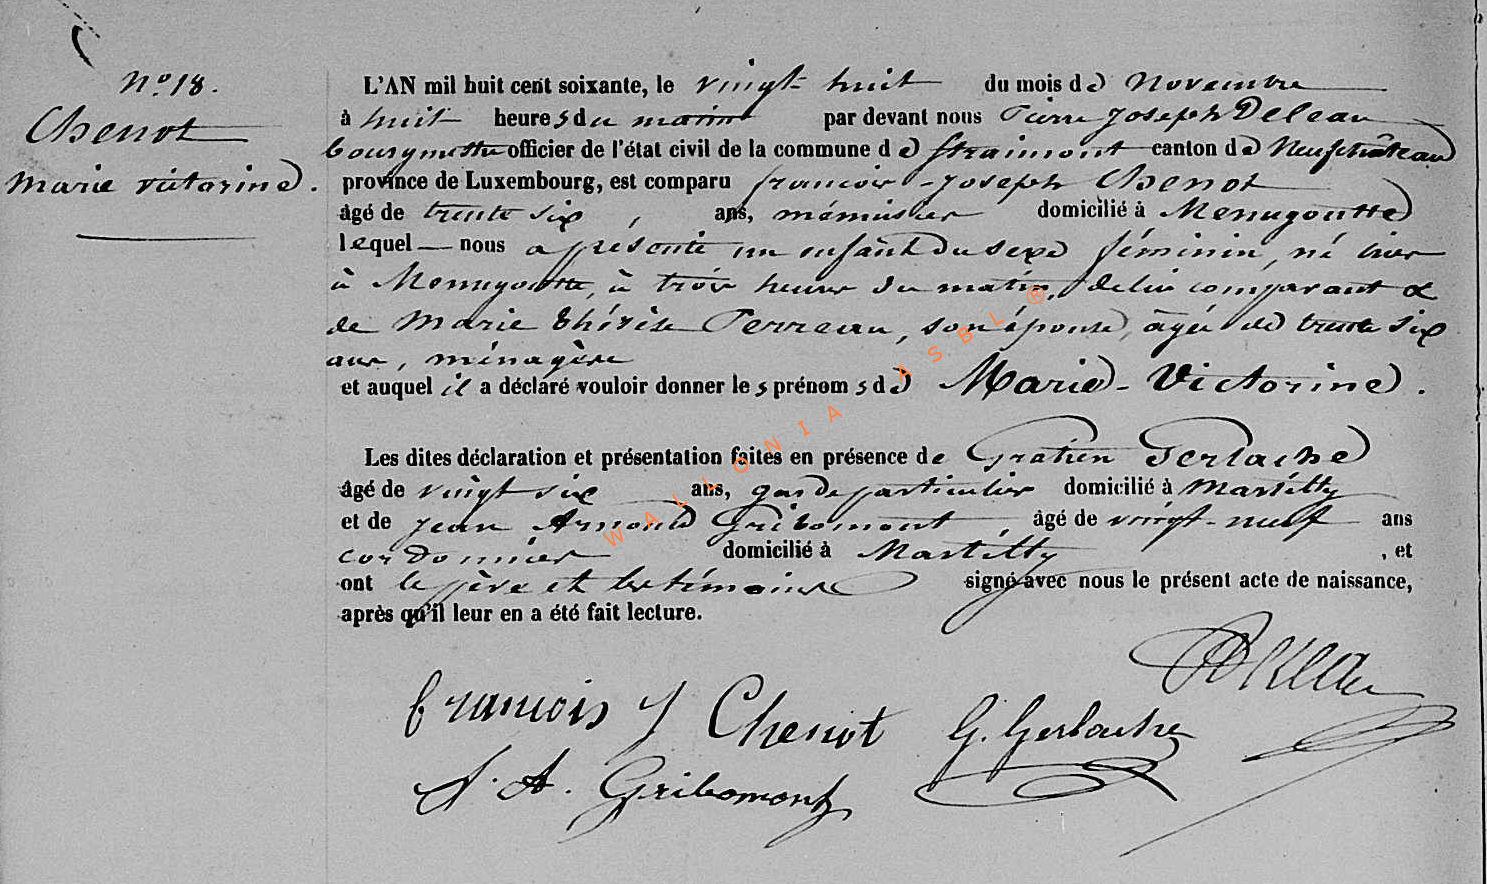 N° 18.
Chenot
Marie Victorine.
L'AN mil huit cent soixante, le vingt huit du mois de Novembre
à huit heures du matin par devant nous Pierre Joseph Deleau
bourgmestre officier de l'état civil de la commune de Straimont canton de Neufchâteau
province de Luxembourg, est comparu François-Joseph Chenot
âgé de trente six, ans, ménuisier domicilié à Menugoutte
lequel nous a présenté un enfant du sexe féminin, né hier
à Menugoutte, à trois heures du matin, de lui comparant &
de Marie Thérèse Perreau, son épouse, âgée de trente six
ans, ménagère
et auquel il a déclaré vouloir donner les prénoms de Marie-Victorine.
Les dites déclaration et présentation faites en présence de Gratien Gerlache
âgé de vingt six ans, garde particulier domicilié à Martilly
et de Jean Arnould Gribomont, âgé de vingt-neuf ans
cordonnier domicilié à Martilly, et
ont le père et les témoins signé avec nous le présent acte de naissance,
après qu'il leur en a été fait lecture.
Deleau
François J Chenot G. Gerlache
J. A. Gribomont
WALLONIA ASBL ®